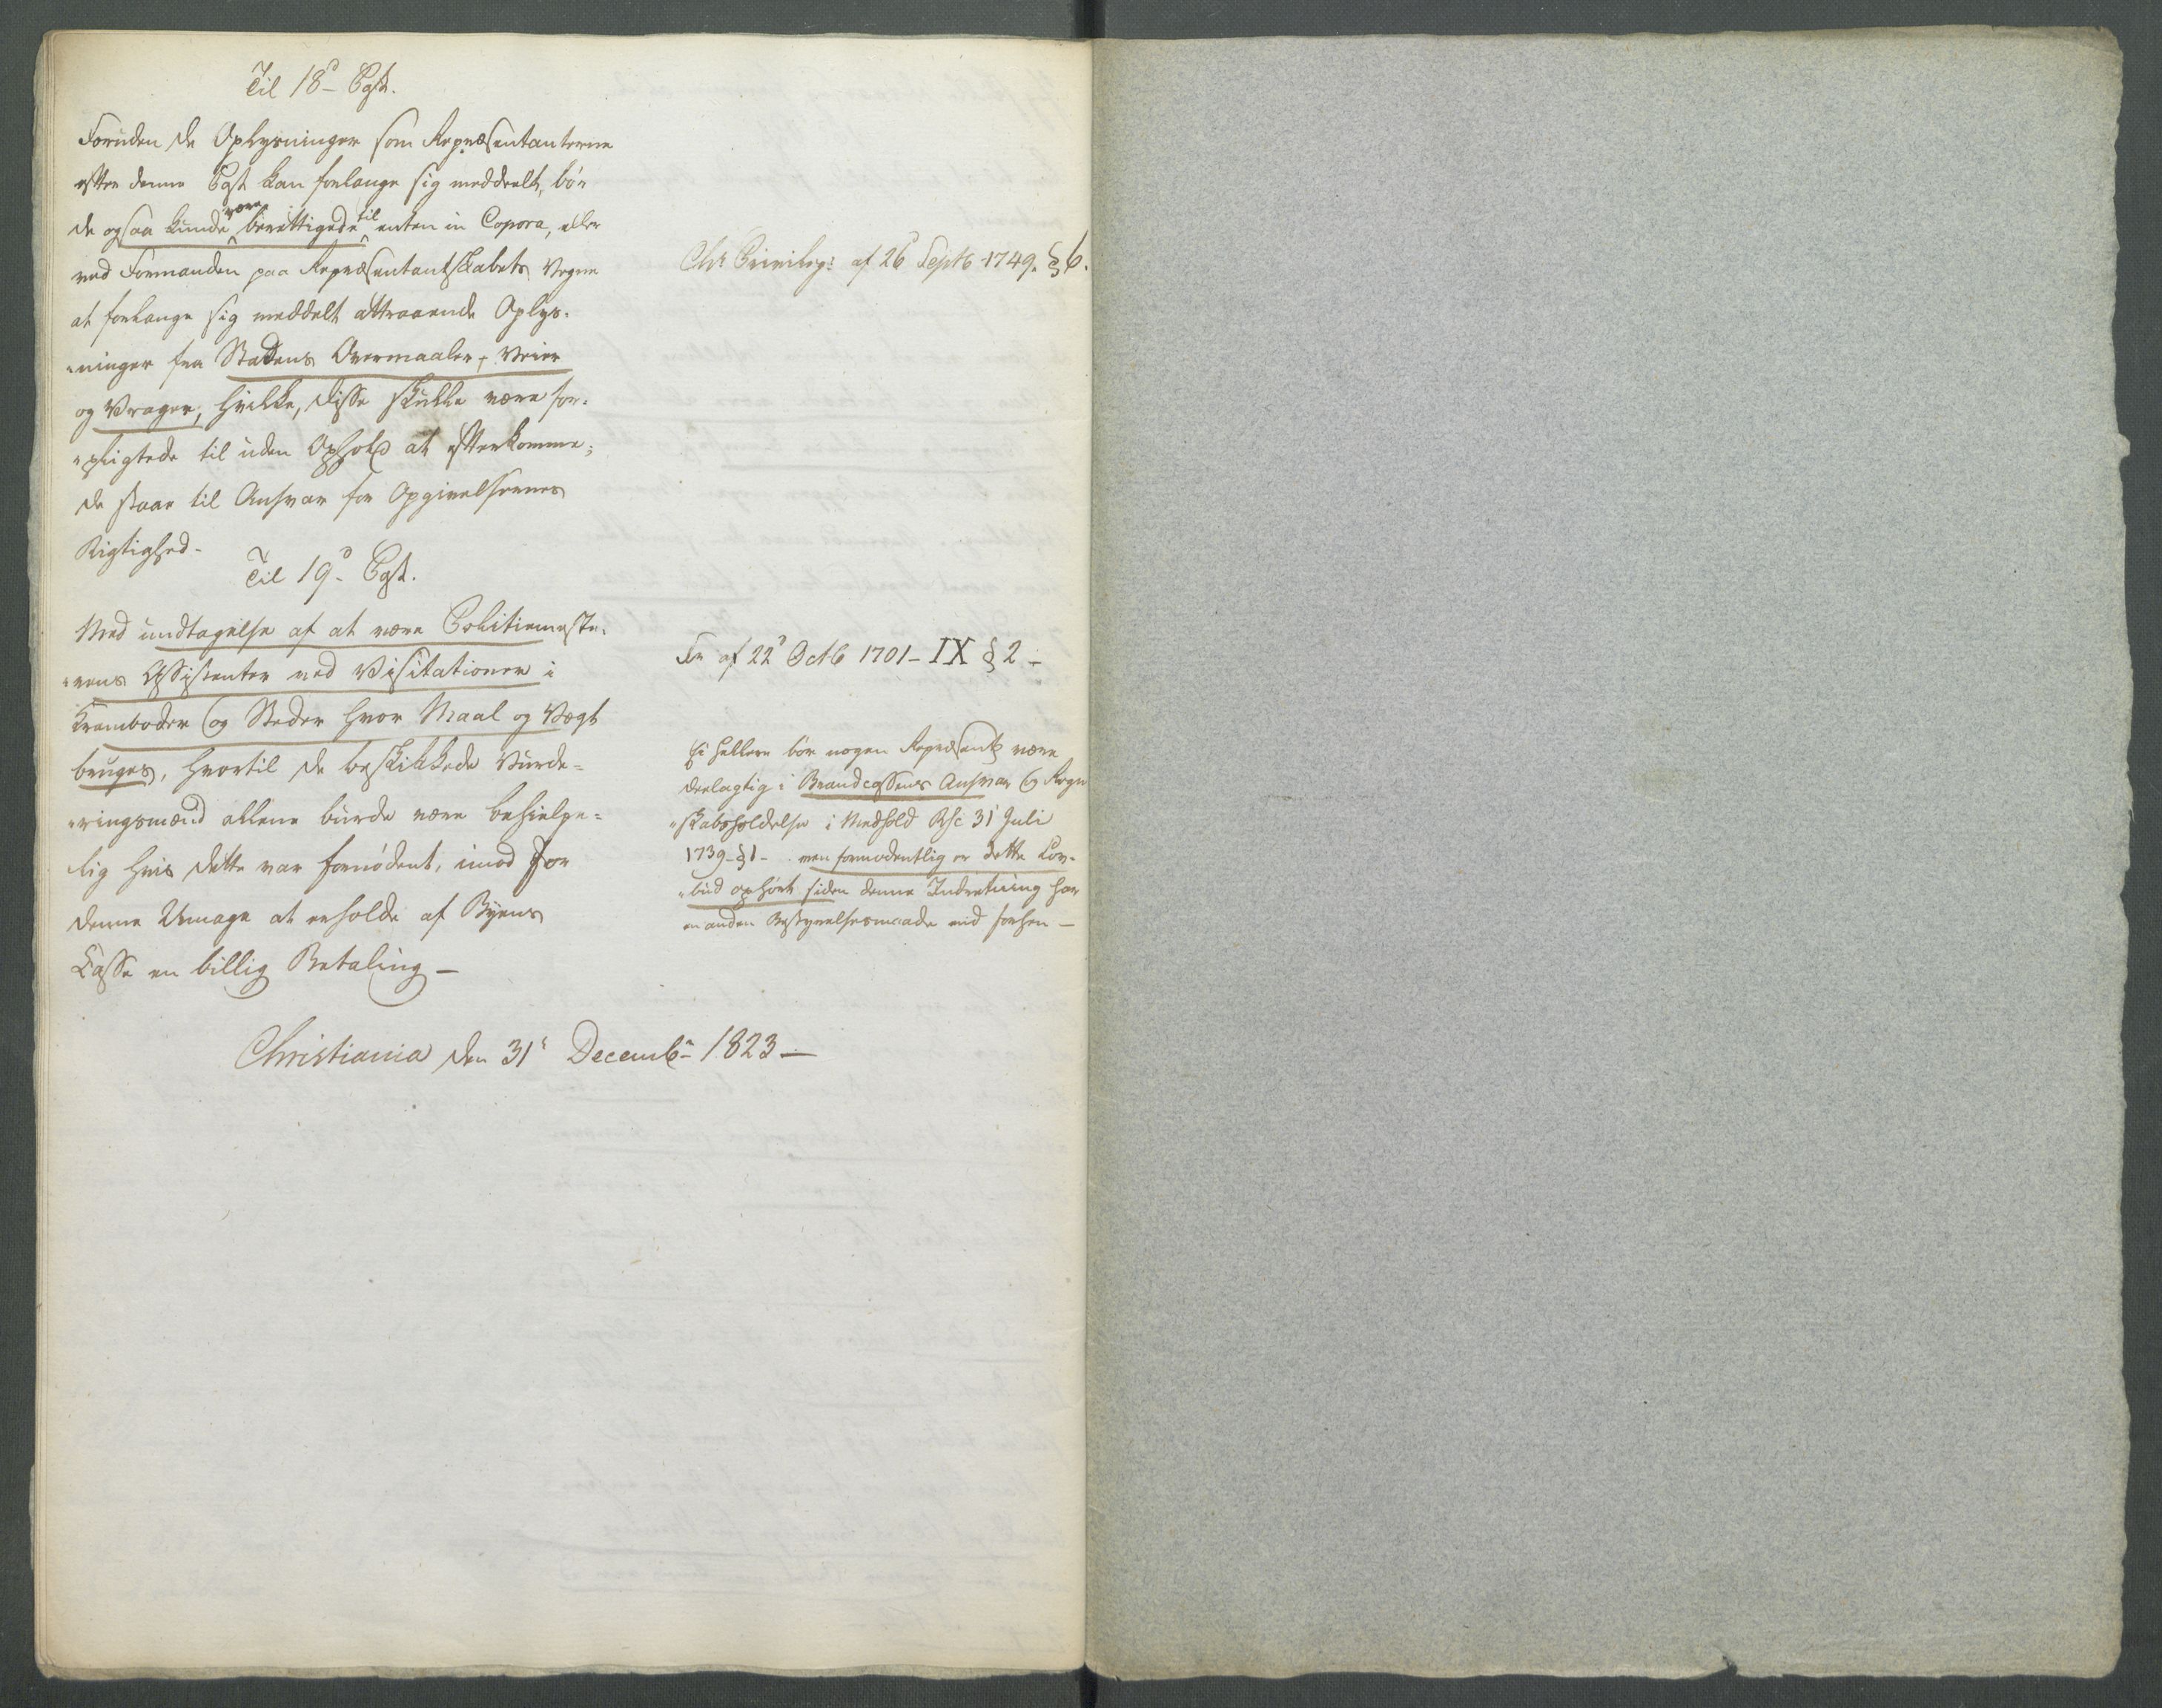 Til 18d Pgst.
Foruden de Oplysninger som Repræsentanterne
efter denne Pgst kan forlange sig meddeelt, bør
de ogsaa kunde være berettigede til enten in Copora, eller
ved Formanden paa Repræsentantskabets Vegne
at forlange sig meddelt attraaende Oplys-
ninger fra Stadens Overmaaler, Veier
og Vrager, hvilke, disse skulle være for-
pligtede til uden Ophold at efterkomme;
de staar til Ansvar for Opgivelsernes
Rigtighed-
Til 19d Pgst.
Med undtagelse af at være Politiemeste-
rens Assistenter ved Visitationer i
Kramboder og Steder hvor Maal og Vægt
bruges, hvortil de beskikkede Vurde-
ringsmænd allene burde være behielpe-
lig hvis dette var fornødent, imod for
denne Umage at erholde af Byens
Casse en billig Betaling-
Christiania den 31te Decembr 1823-
Chr. Privileg: af 26d Septb 1749. § 6.
Fr af 22d Octb 1701- IX § 2-
Ei hellere bør nogen Repræsent: være
deelagtig i Brandcassens Ansvar og Regn
skabsholdelse i Medhold Rsc 31 Juli
1739-§1- men formodentlig er dette Lov-
bud ophørt siden denne Indretning har
en anden Bestyrelsesmaade end forhen-